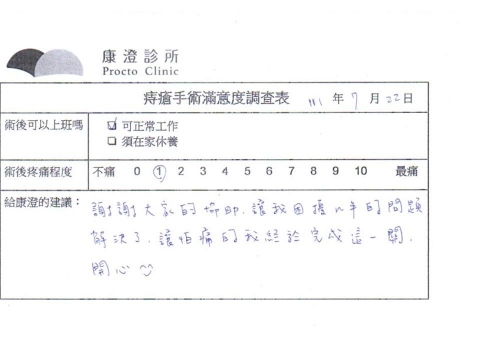 康澄診所
Procto Clinic
痔瘡手術滿意度調查表 111 年 7 月 22 日
術後可以上班嗎 ☑ 可正常工作
☐ 須在家休養
術後疼痛程度 不痛 0 1 2 3 4 5 6 7 8 9 10 最痛
給康澄的建議： 謝謝大家的協助，讓我困擾N年的問題
解決了，讓怕痛的我終於完成這一關，
開心